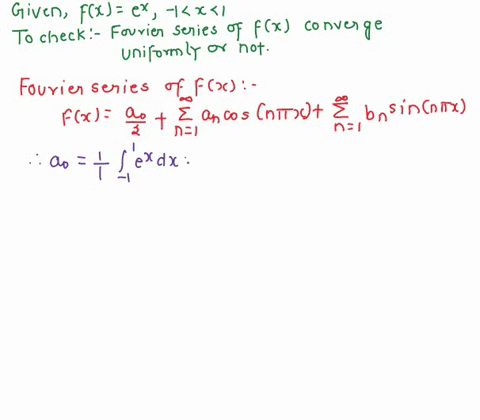 Given, f(x) = eˣ, -1 < x < 1
To check:- Fourier series of f(x) converge
uniformly or not.
Fourier series of f(x):-
f(x) = a₀/2 + ∑_{n=1}^{∞} aₙ cos(nπx) + ∑_{n=1}^{∞} bₙ sin(nπx)
∴ a₀ = 1/1 ∫_{-1}^{1} eˣ dx :